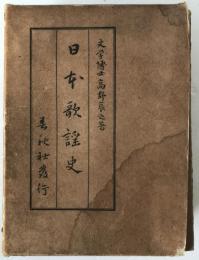 文学博士高野辰之著
日本歌謡史
春秋社發行